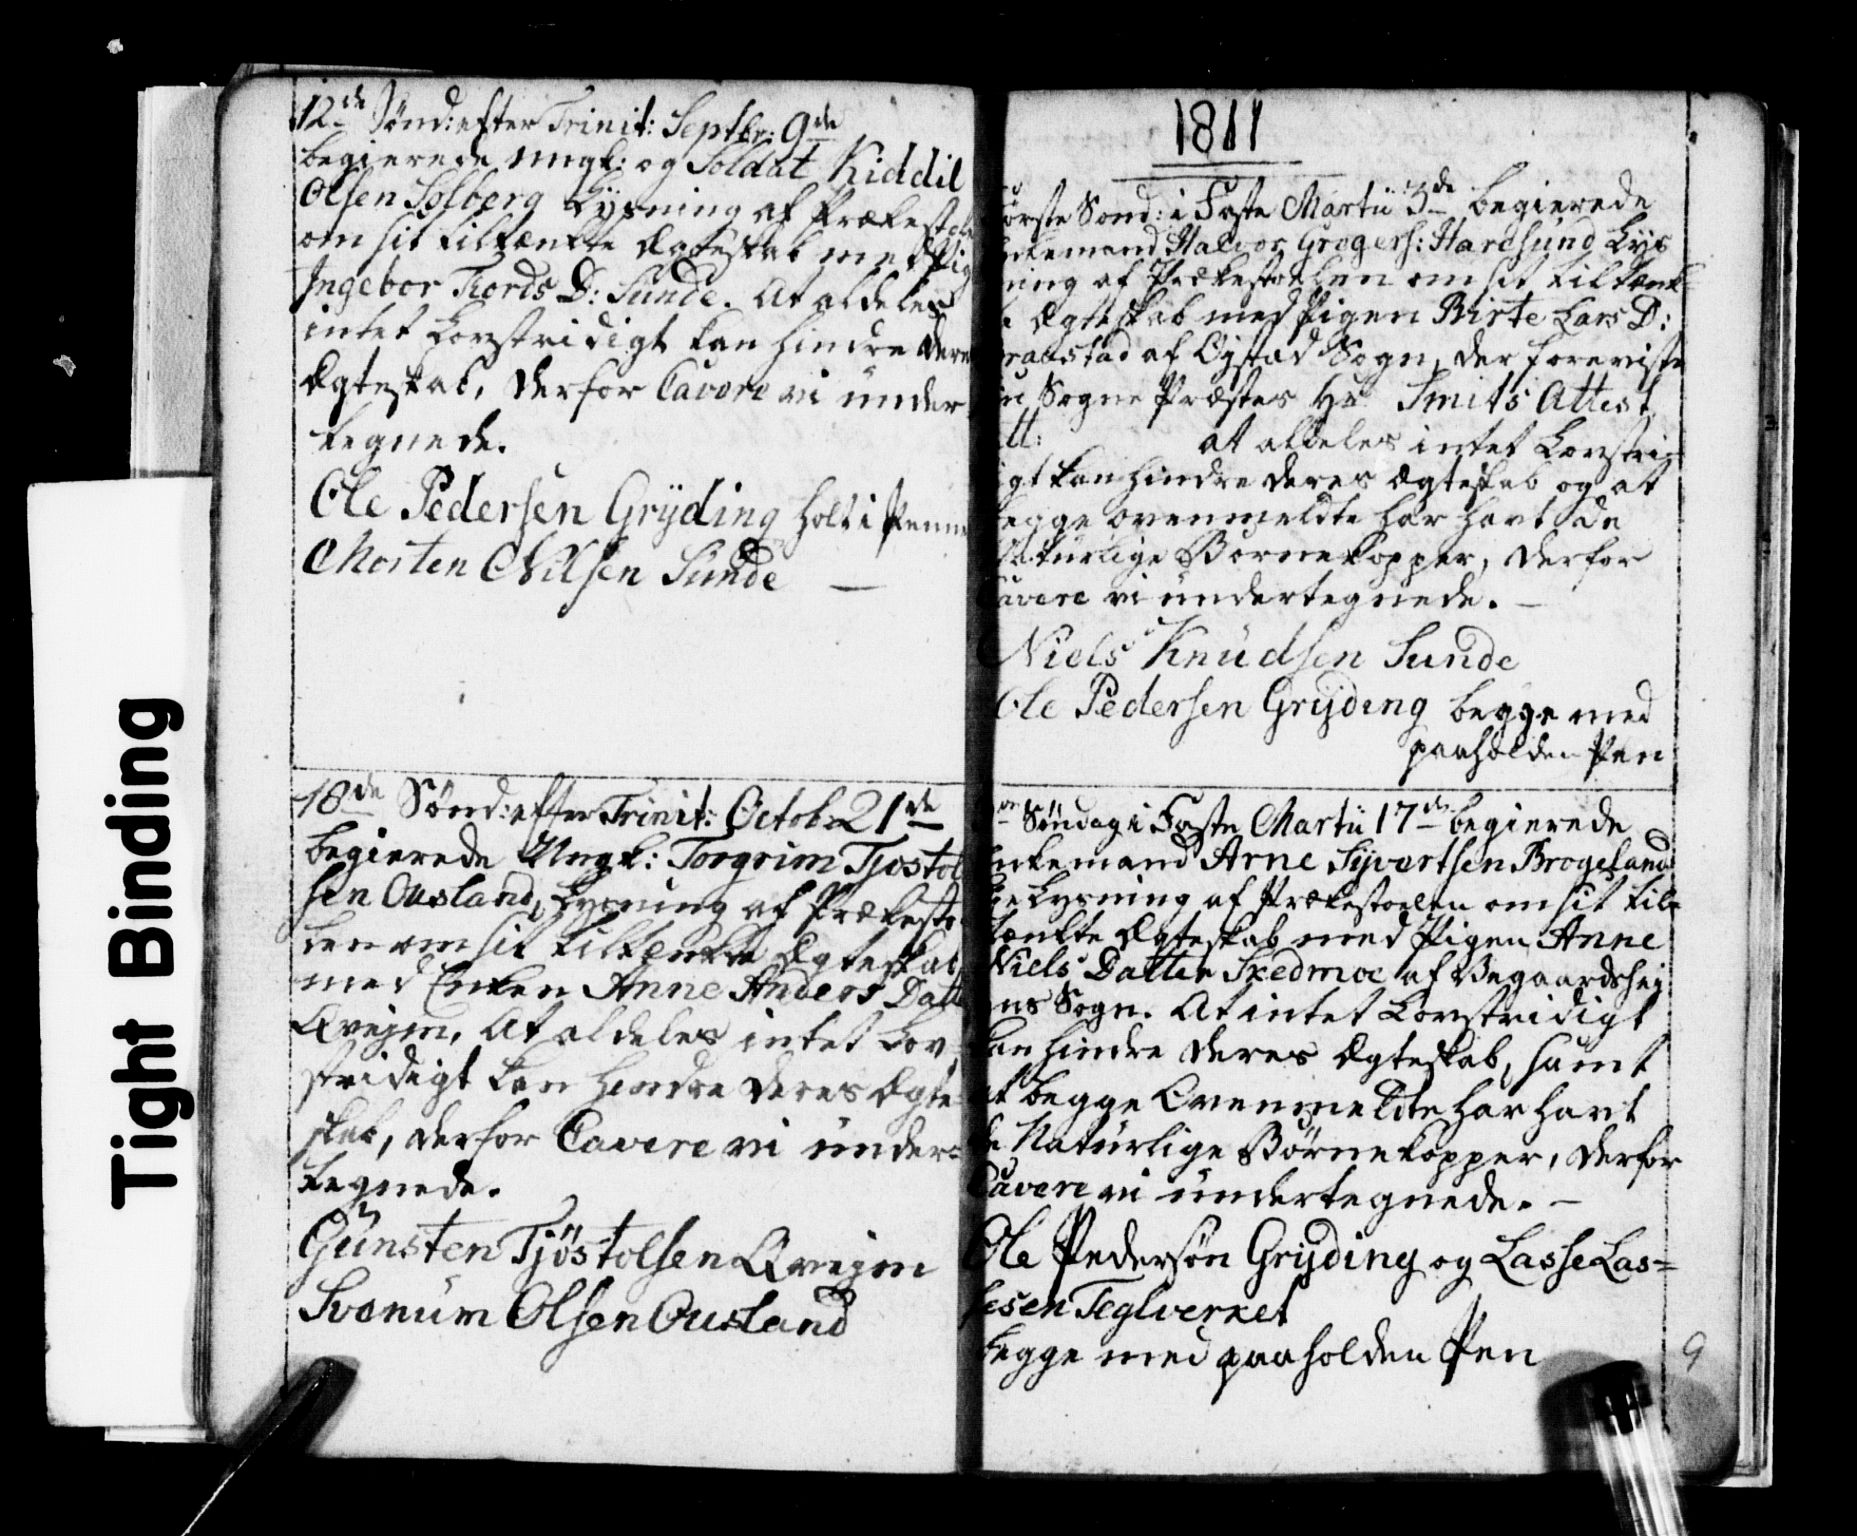 Tight Binding
12de Sønd: efter Trinit: Septbr: 9de
begierede ungk: og Soldat Kiddil
Olsen Solberg Lysning af Prækestole
om sit tiltænkte Ægteskab med Pig
Ingebor Tiords D: Sunde. At aldeles
intet Lovstridigt kan hindre deres
Ægteskab, derfor Cavere vi under-
tegnede.
Ole Pedersen Grÿding holt i Penne
Morten Nilsen Sunde —
18de Sønd: efter Trinit: Octobr 21de
begierede Ungk: Torgrim Tjostol
sen Ousland, Lysning af Prækesto-
len om sit tiltænkte Ægteskab
med Enken Anne Anders Datt
Qvejm, At aldeles intet Lov-
stridigt kan hindre deres Ægte-
skab, derfor Cavere vi under-
tegnede.
Günsten Tjöstolsen Qvejm
Svenum Olsen Ousland
1811
ørste Sønd: i Faste Martii 3de begierede
nkemand Halvor Grogers: Hardsund Lys
ning af Prækestoelen om sit tiltænk
e Ægteskab med Pigen Birte Lars D:
raastad af Øjstad Sogn, der foreviste
n Sogne Præstes Hr Smits Attest
tt: at aldeles intet Lovstri-
igt kan hindre deres Ægteskab og at
egge ovenmeldte har havt de
aturlige Børnekopper, derfor
avere vi undertegnede. —
Niels Knüdsen Sunde
Ole Pedersen Grÿding begge med
paaholden Pen
Søndag i Faste Martii 17de begierede
nkemand Arne Sÿvertsen Brogeland
Lysning af Prækestoelen om sit til-
tænkte Ægteskab med Pigen Anne
Niels Datter Skedmoe af Vegaardshej
ens Sogn. At intet Lovstridigt
kan hindre deres Ægteskab, samt
at begge Ovenmeldte har havt
de Naturlige Børnekopper, derfor
Cavere vi undertegnede. —
Ole Pedersön Grÿding og Lasse Las-
sesen Teglverket
begge med paaholden Pen
9